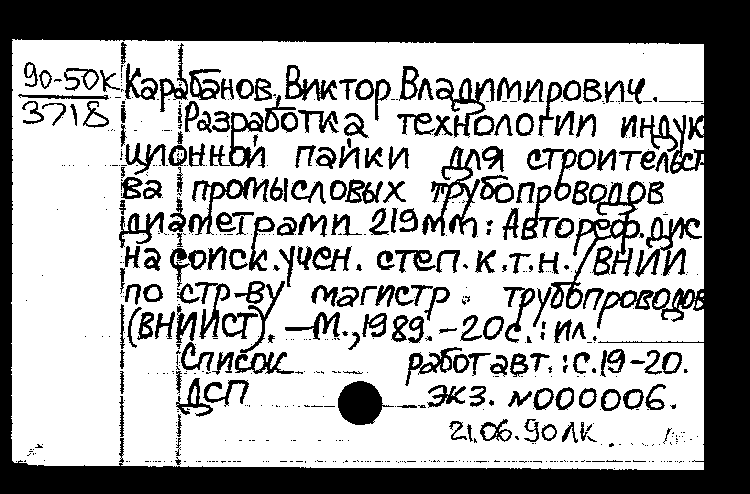 90-50К
3718
Карабанов, Виктор Владимирович.
Разработка технологии индук
ционной пайки для строительст
ва промысловых трубопроводов
диаметрами 219мм: Автореф.дис
на соиск.учен. степ.к.т.н./ВНИИ
по стр-ву магистр. трубопроводов
(ВНИИСТ). —М.,1989.-20с.:ил.
Список работ авт.:с.19-20.
ДСП экз. №000006.
21.06.90 ЛК